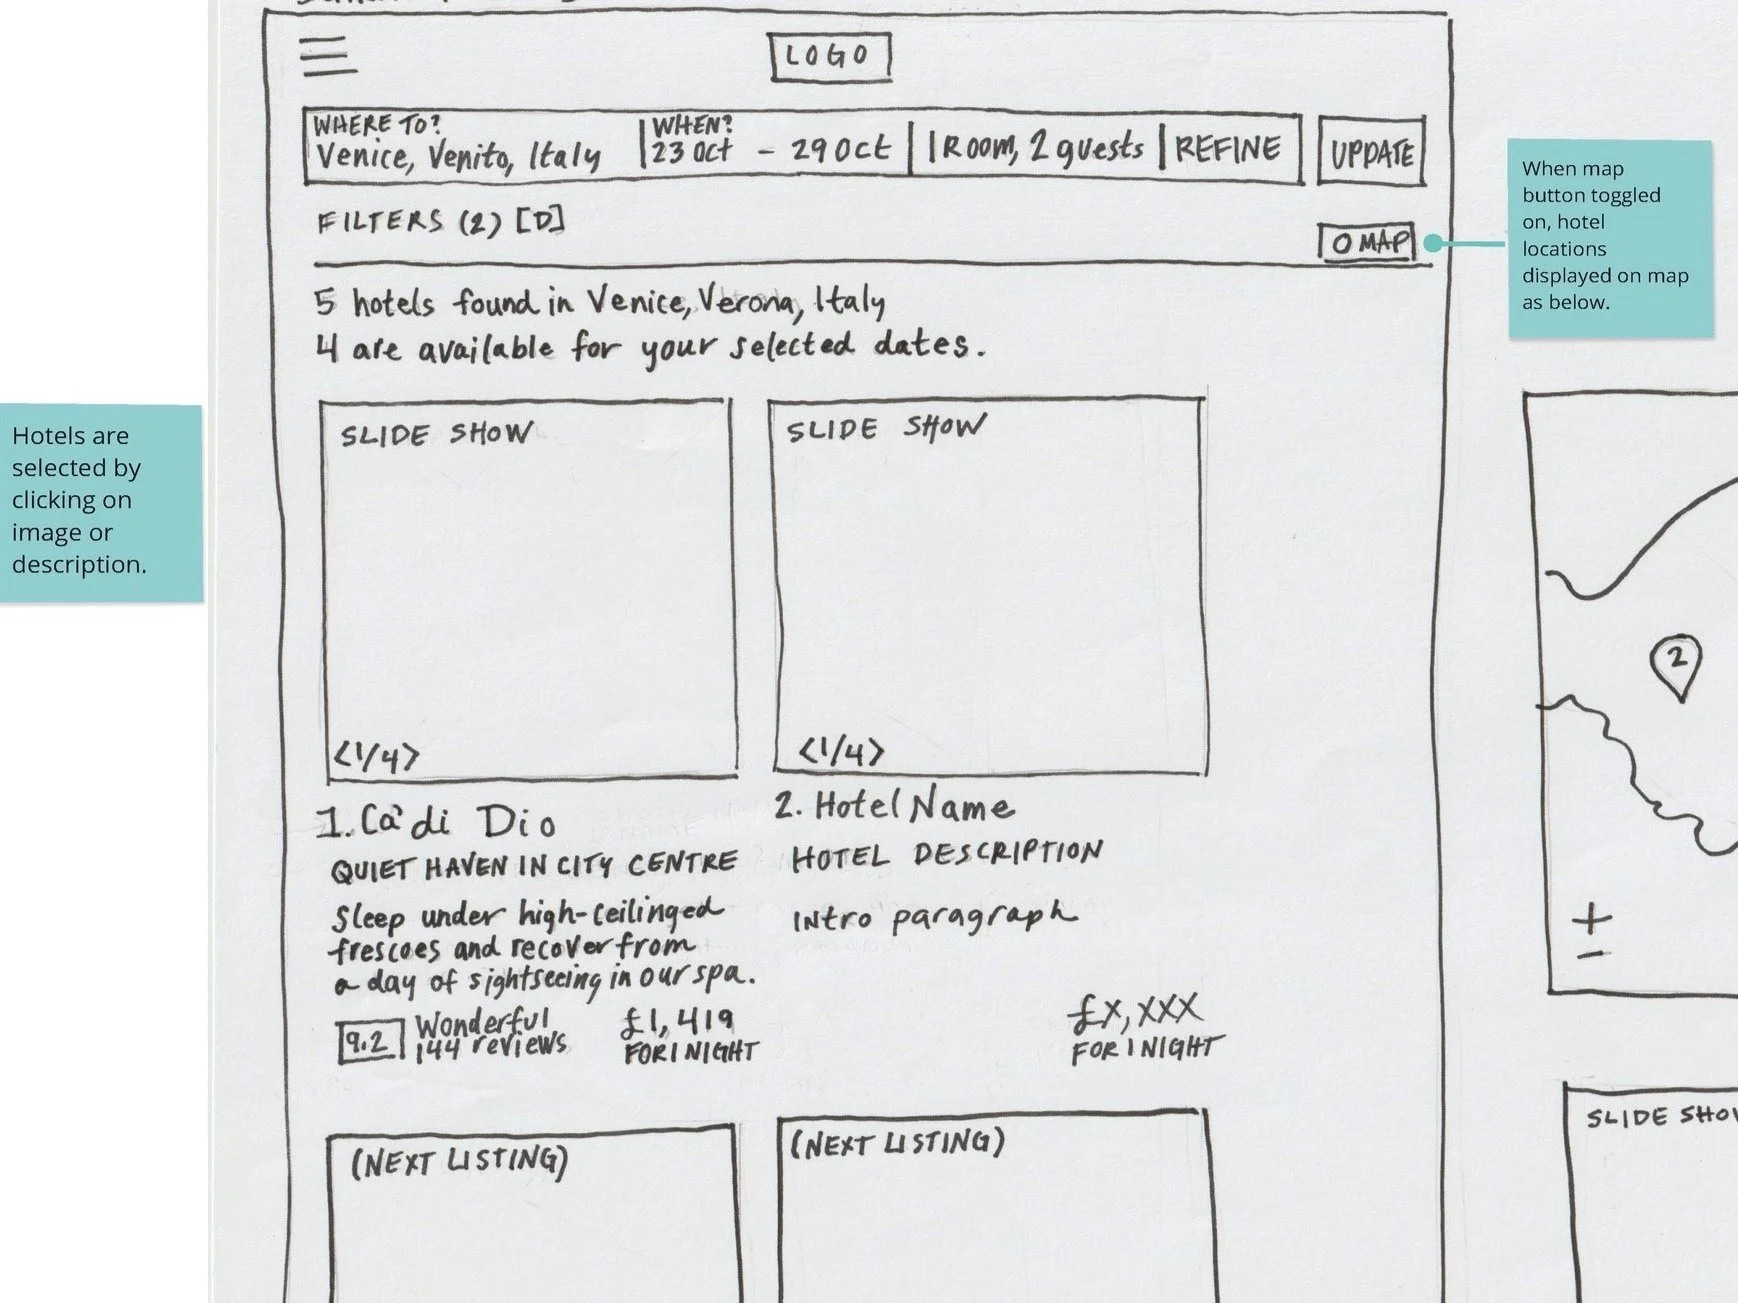 LOGO
WHERE TO?
Venice, Venito, Italy
WHEN?
23 Oct - 29 Oct
1 Room, 2 guests
REFINE
UPDATE
FILTERS (2) [D]
O MAP
When map
button toggled
on, hotel
locations
displayed on map
as below.
5 hotels found in Venice, Verona, Italy
4 are available for your selected dates.
Hotels are
selected by
clicking on
image or
description.
SLIDE SHOW
<1/4>
SLIDE SHOW
<1/4>
2
+
-
1. Ca' di Dio
QUIET HAVEN IN CITY CENTRE
Sleep under high-ceilinged
frescoes and recover from
a day of sightseeing in our spa.
9.2
Wonderful
144 reviews
£1,419
FOR 1 NIGHT
2. Hotel Name
HOTEL DESCRIPTION
Intro paragraph
£X,XXX
FOR 1 NIGHT
(NEXT LISTING)
(NEXT LISTING)
SLIDE SHOW